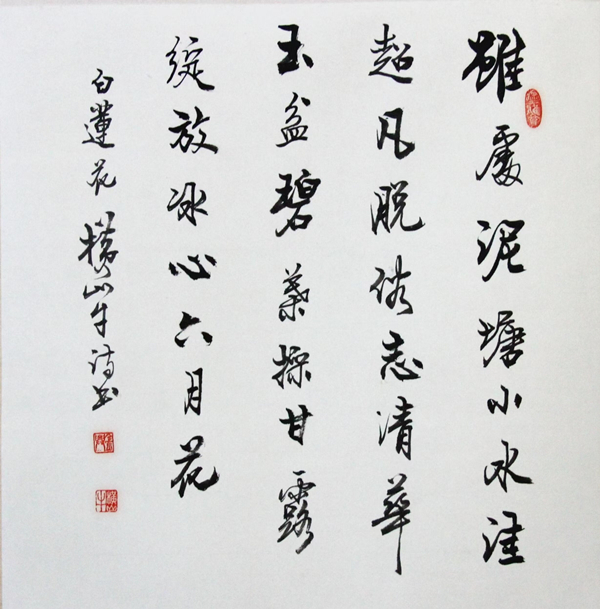 雖處泥塘小水洼
超凡脫俗志清華
玉盆碧葉操甘露
綻放冰心六月花
白蓮花 橫山牛詩書